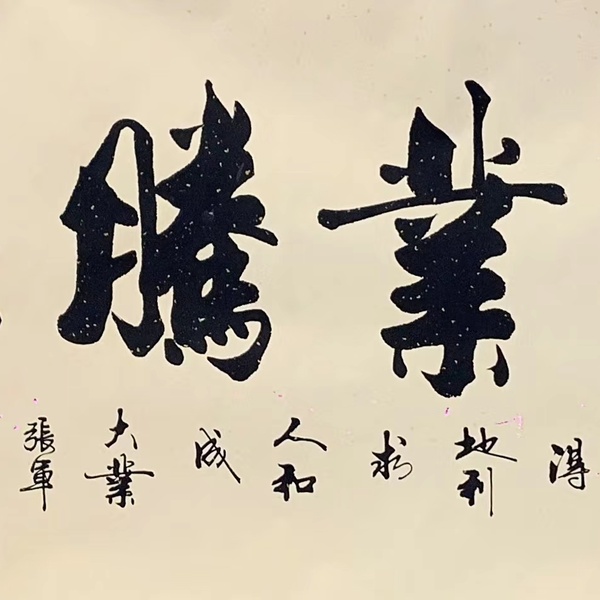 業騰
得地利求人和成大業
張軍